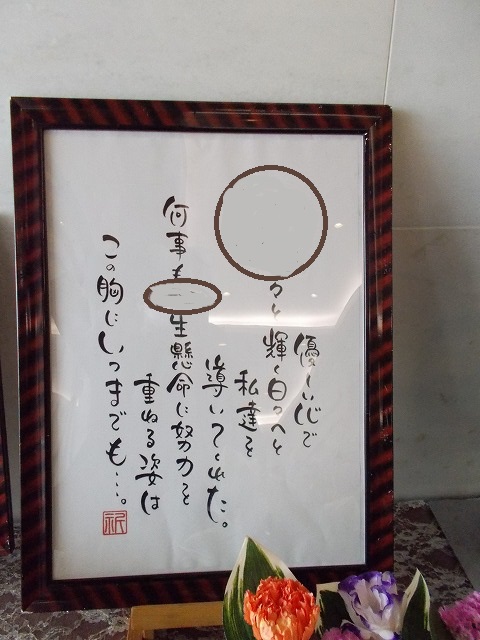 優しい心で
々と輝く日々へと
私達を
導いてくれた。
何事も 生懸命に努力を
重ねる姿は
この胸にいつまでも…。